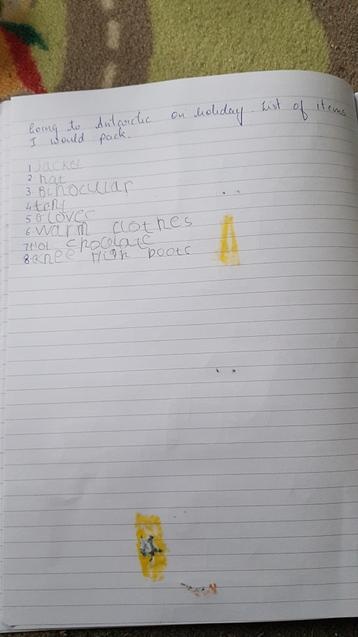 Going to Antarctic on holiday. List of items
I would pack.
1 Jacket
2 hat
3 Binocular
4 tent
5 Gloves
6 warm clothes
7 Hot chocolate
8 knee high boots